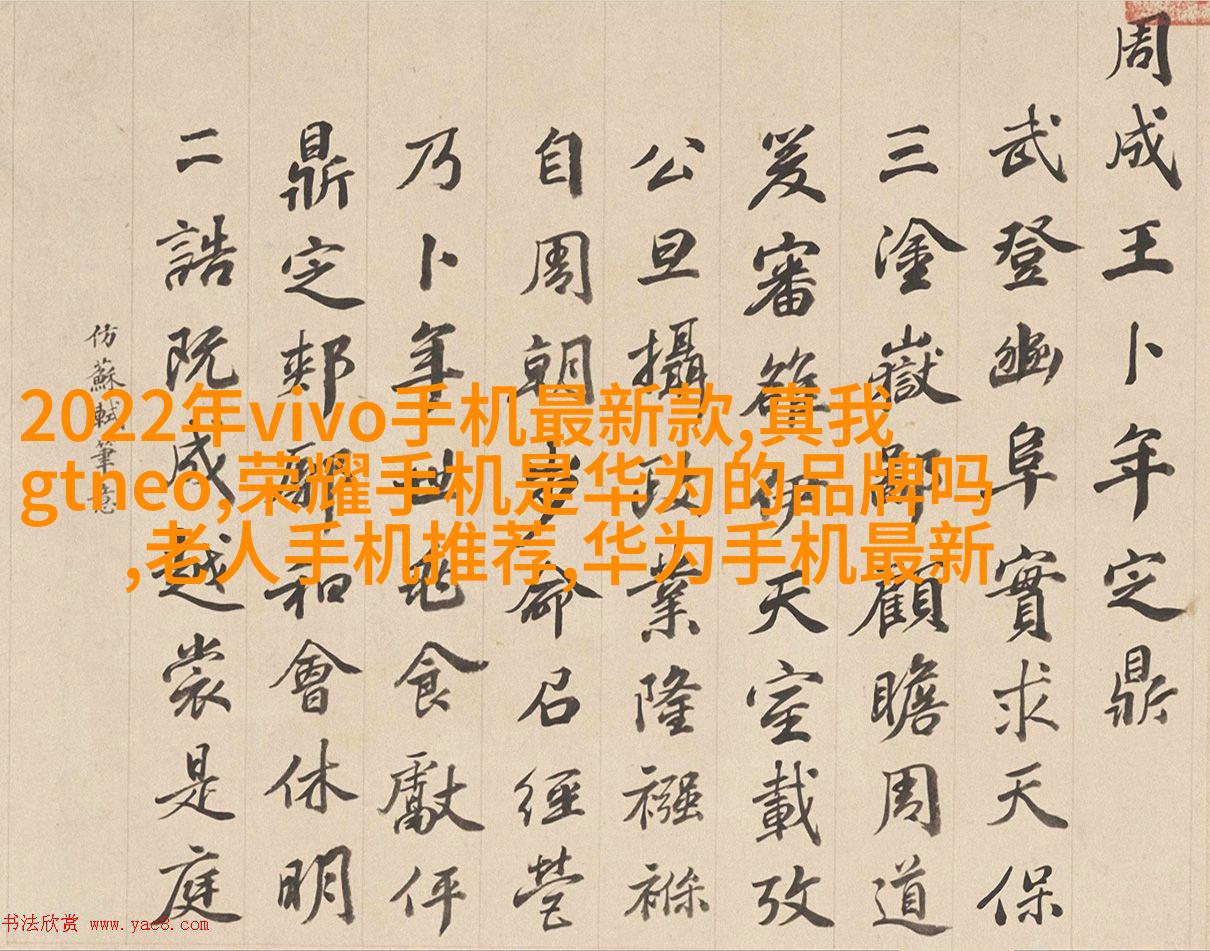 周成王卜年定鼎
武登豳阜實求天保
三塗嶽鄙顧瞻周道
爰審雒伊天室載攷
公旦攝政業隆襁褓
自周朝步命召經營
乃卜年世食獻伻
鼎定郟鄏和會休明
二誥既成越裳是庭
仿蘇軾筆意
2022年vivo手机最新款,真我
gtneo,荣耀手机是华为的品牌吗
,老人手机推荐,华为手机最新
书法欣赏 www.yac8.com